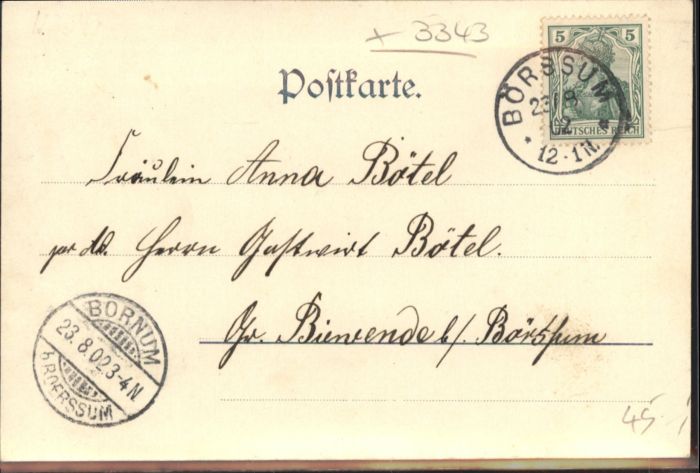 + 3343
Postkarte.
5 5
DEUTSCHES REICH
BÖRSSUM
23 8
02
* 12-1N. *
Fräulein Anna Bötel
Herrn Gastwirt Bötel.
Gr. Biewende b/ Börssum
BORNUM
23.8.02 3-4N
b BOERSSUM
45